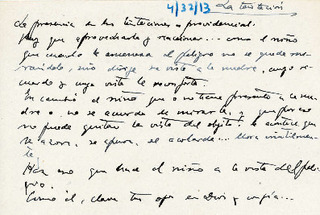 4/32/13 La tentación
La presencia en las tentaciones es providencial.
Hay que aprovecharla y reaccionar... como el niño
que cuando le amenaza el peligro no se queda mi-
rándolo, sino dirige su vista a la madre, cuyo re-
cuerdo y cuya vista le conforta.
En cambio el niño que o no tiene presente a la ma-
dre o no se acuerda de mirarla, y
no puede quitar la vista del objeto: le acontece que
se azora, se apura, se acobarda... llora inútilmen-
te.
Haz lo que hace el niño a la vista del peli-
gro.
Como él, clava tus ojos en Dios y confía...